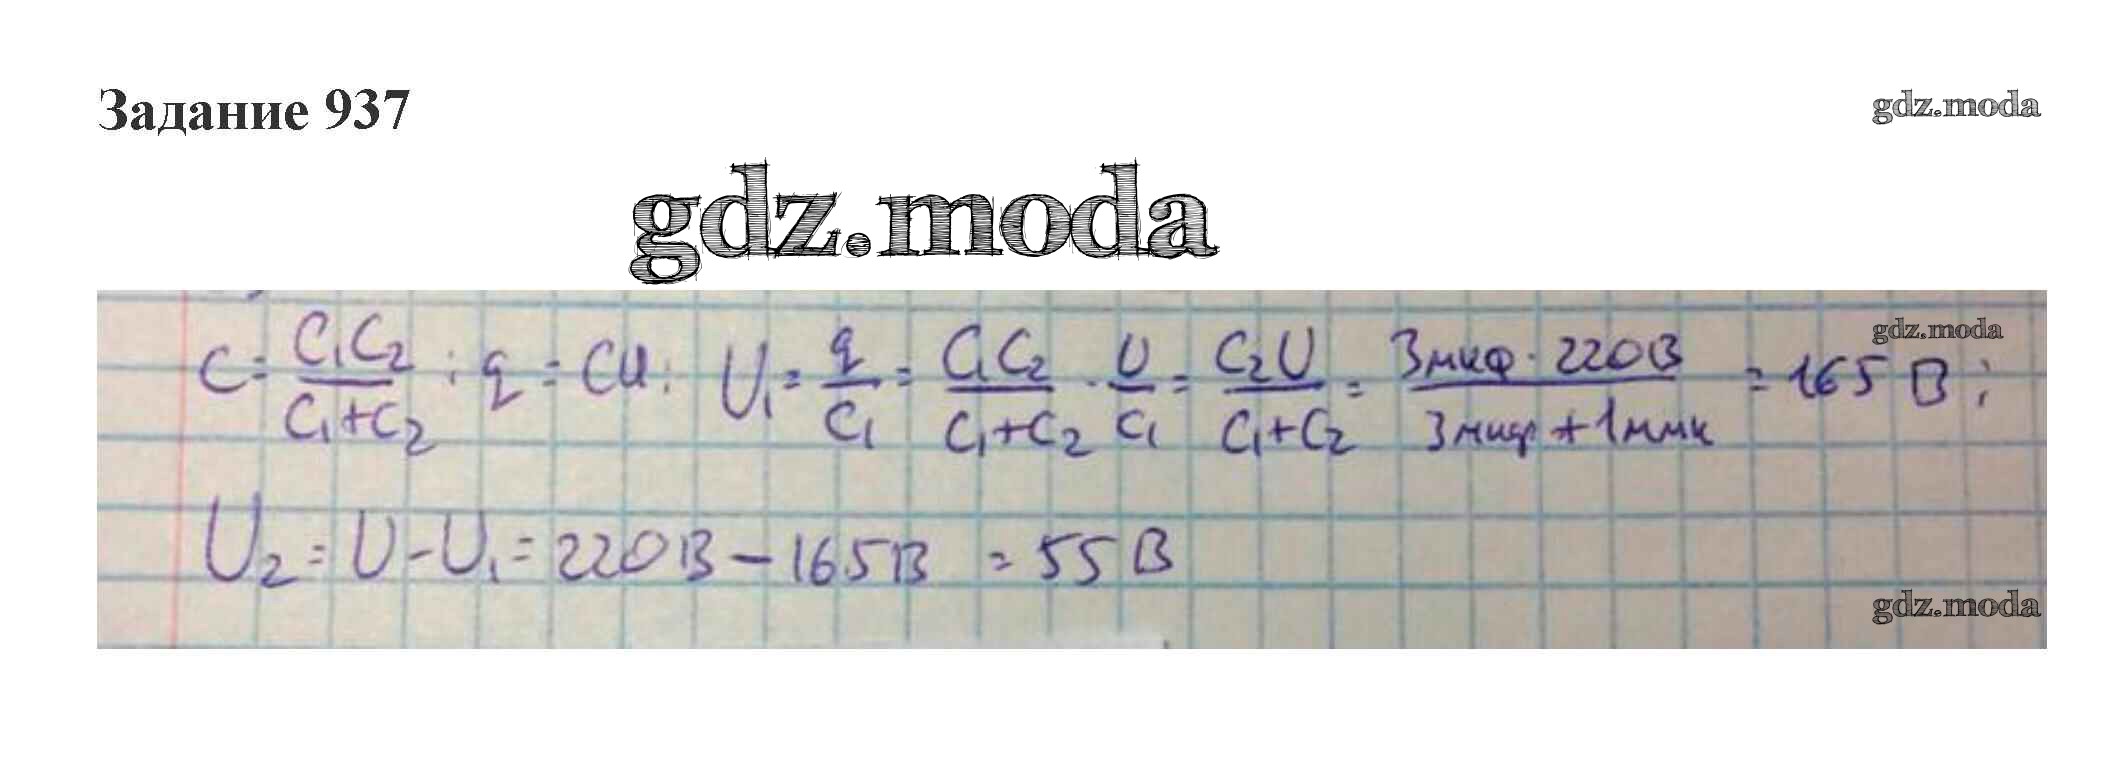 Задание 937
gdz.moda
gdz.moda
C = C₁C₂/(C₁+C₂) ; q = CU ; U₁ = q/C₁ = C₁C₂/(C₁+C₂) · U/C₁ = C₂U/(C₁+C₂) = 3мкф · 220В/(3мкф + 1ммк) = 165 В ;
gdz.moda
U₂ = U - U₁ = 220В - 165В = 55 В
gdz.moda